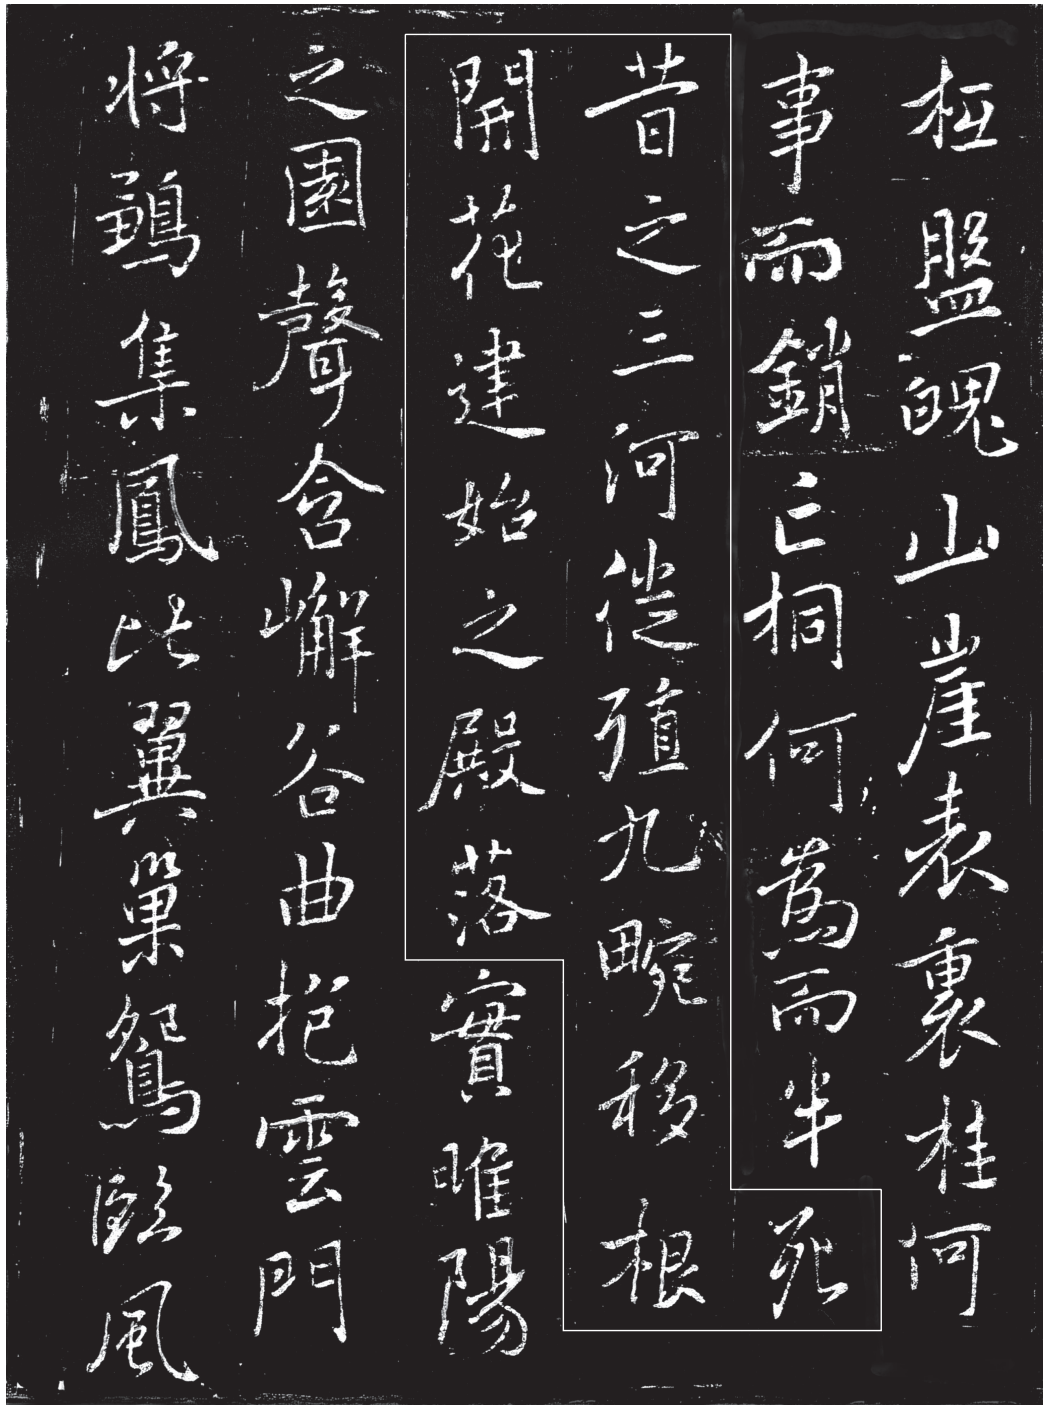 柢盤魄山崖表裏桂何
事而銷亡桐何為而半死
昔之三河徙殖九畹移根
開花建始之殿落實睢陽
之園聲含嶰谷曲抱雲門
将鶵集鳳比翼巢鴛臨風